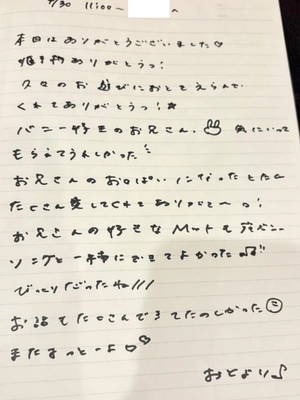 7/30 11:00〜
本日はありがとうございました♡
ありがとうっ!
久々のお遊びにおとをえらんで
くれてありがとうっ!☆
バニー好きのお兄さん、気にいって
もらえてうれしかった
お兄さんの
たくさん愛してくれてありがとーっ!
お兄さんの好きなMットも
一緒にできてよかった
びっくりだったね///
お話もたくさんできてたのしかった☺
またきっとーよ♡♡
おとより♪